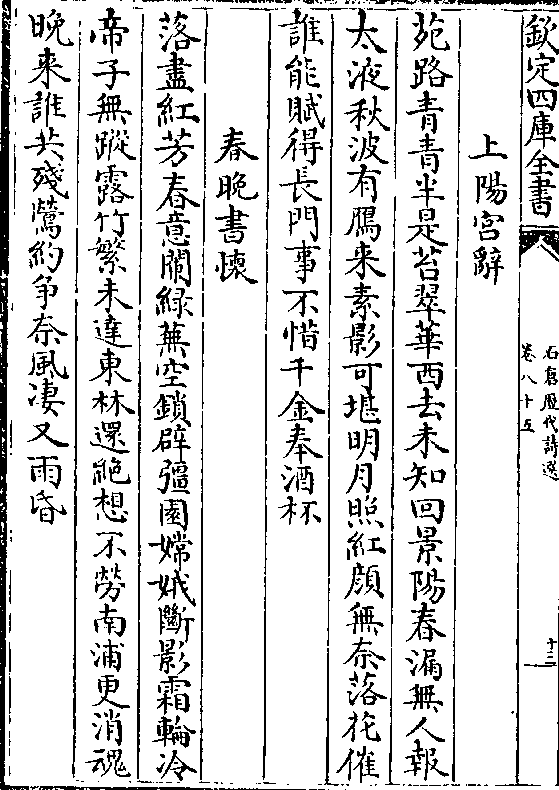 欽定四庫全書
石倉歷代詩選
卷八十五
十三
上陽宮辭
苑路青青半是苔翠華西去未知回景陽春漏無人報
太液秋波有鴈来素影可堪明月照紅顔無奈落花催
誰能賦得長門事不惜千金奉酒杯
春晚書懷
落盡紅芳春意闌緑蕪空鎖辟疆園嫦娥斷影霜輪冷
帝子無蹤露竹繁未達東林還絶想不勞南浦更消魂
晚来誰共殘鶯約争奈風凄又雨昏